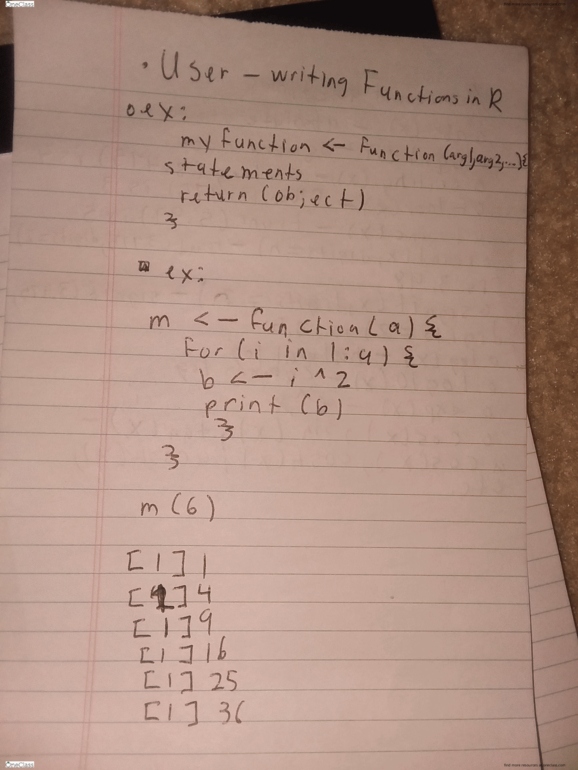 OneClass
• User - writing Functions in R
o ex:
my function <- function (arg1,arg2,...){
statements
return (object)
}
ex:
m <- function (a) {
for (i in 1:a) {
b <- i ^2
print (b)
}
}
m (6)
[1] 1
[1] 4
[1] 9
[1] 16
[1] 25
[1] 36
OneClass